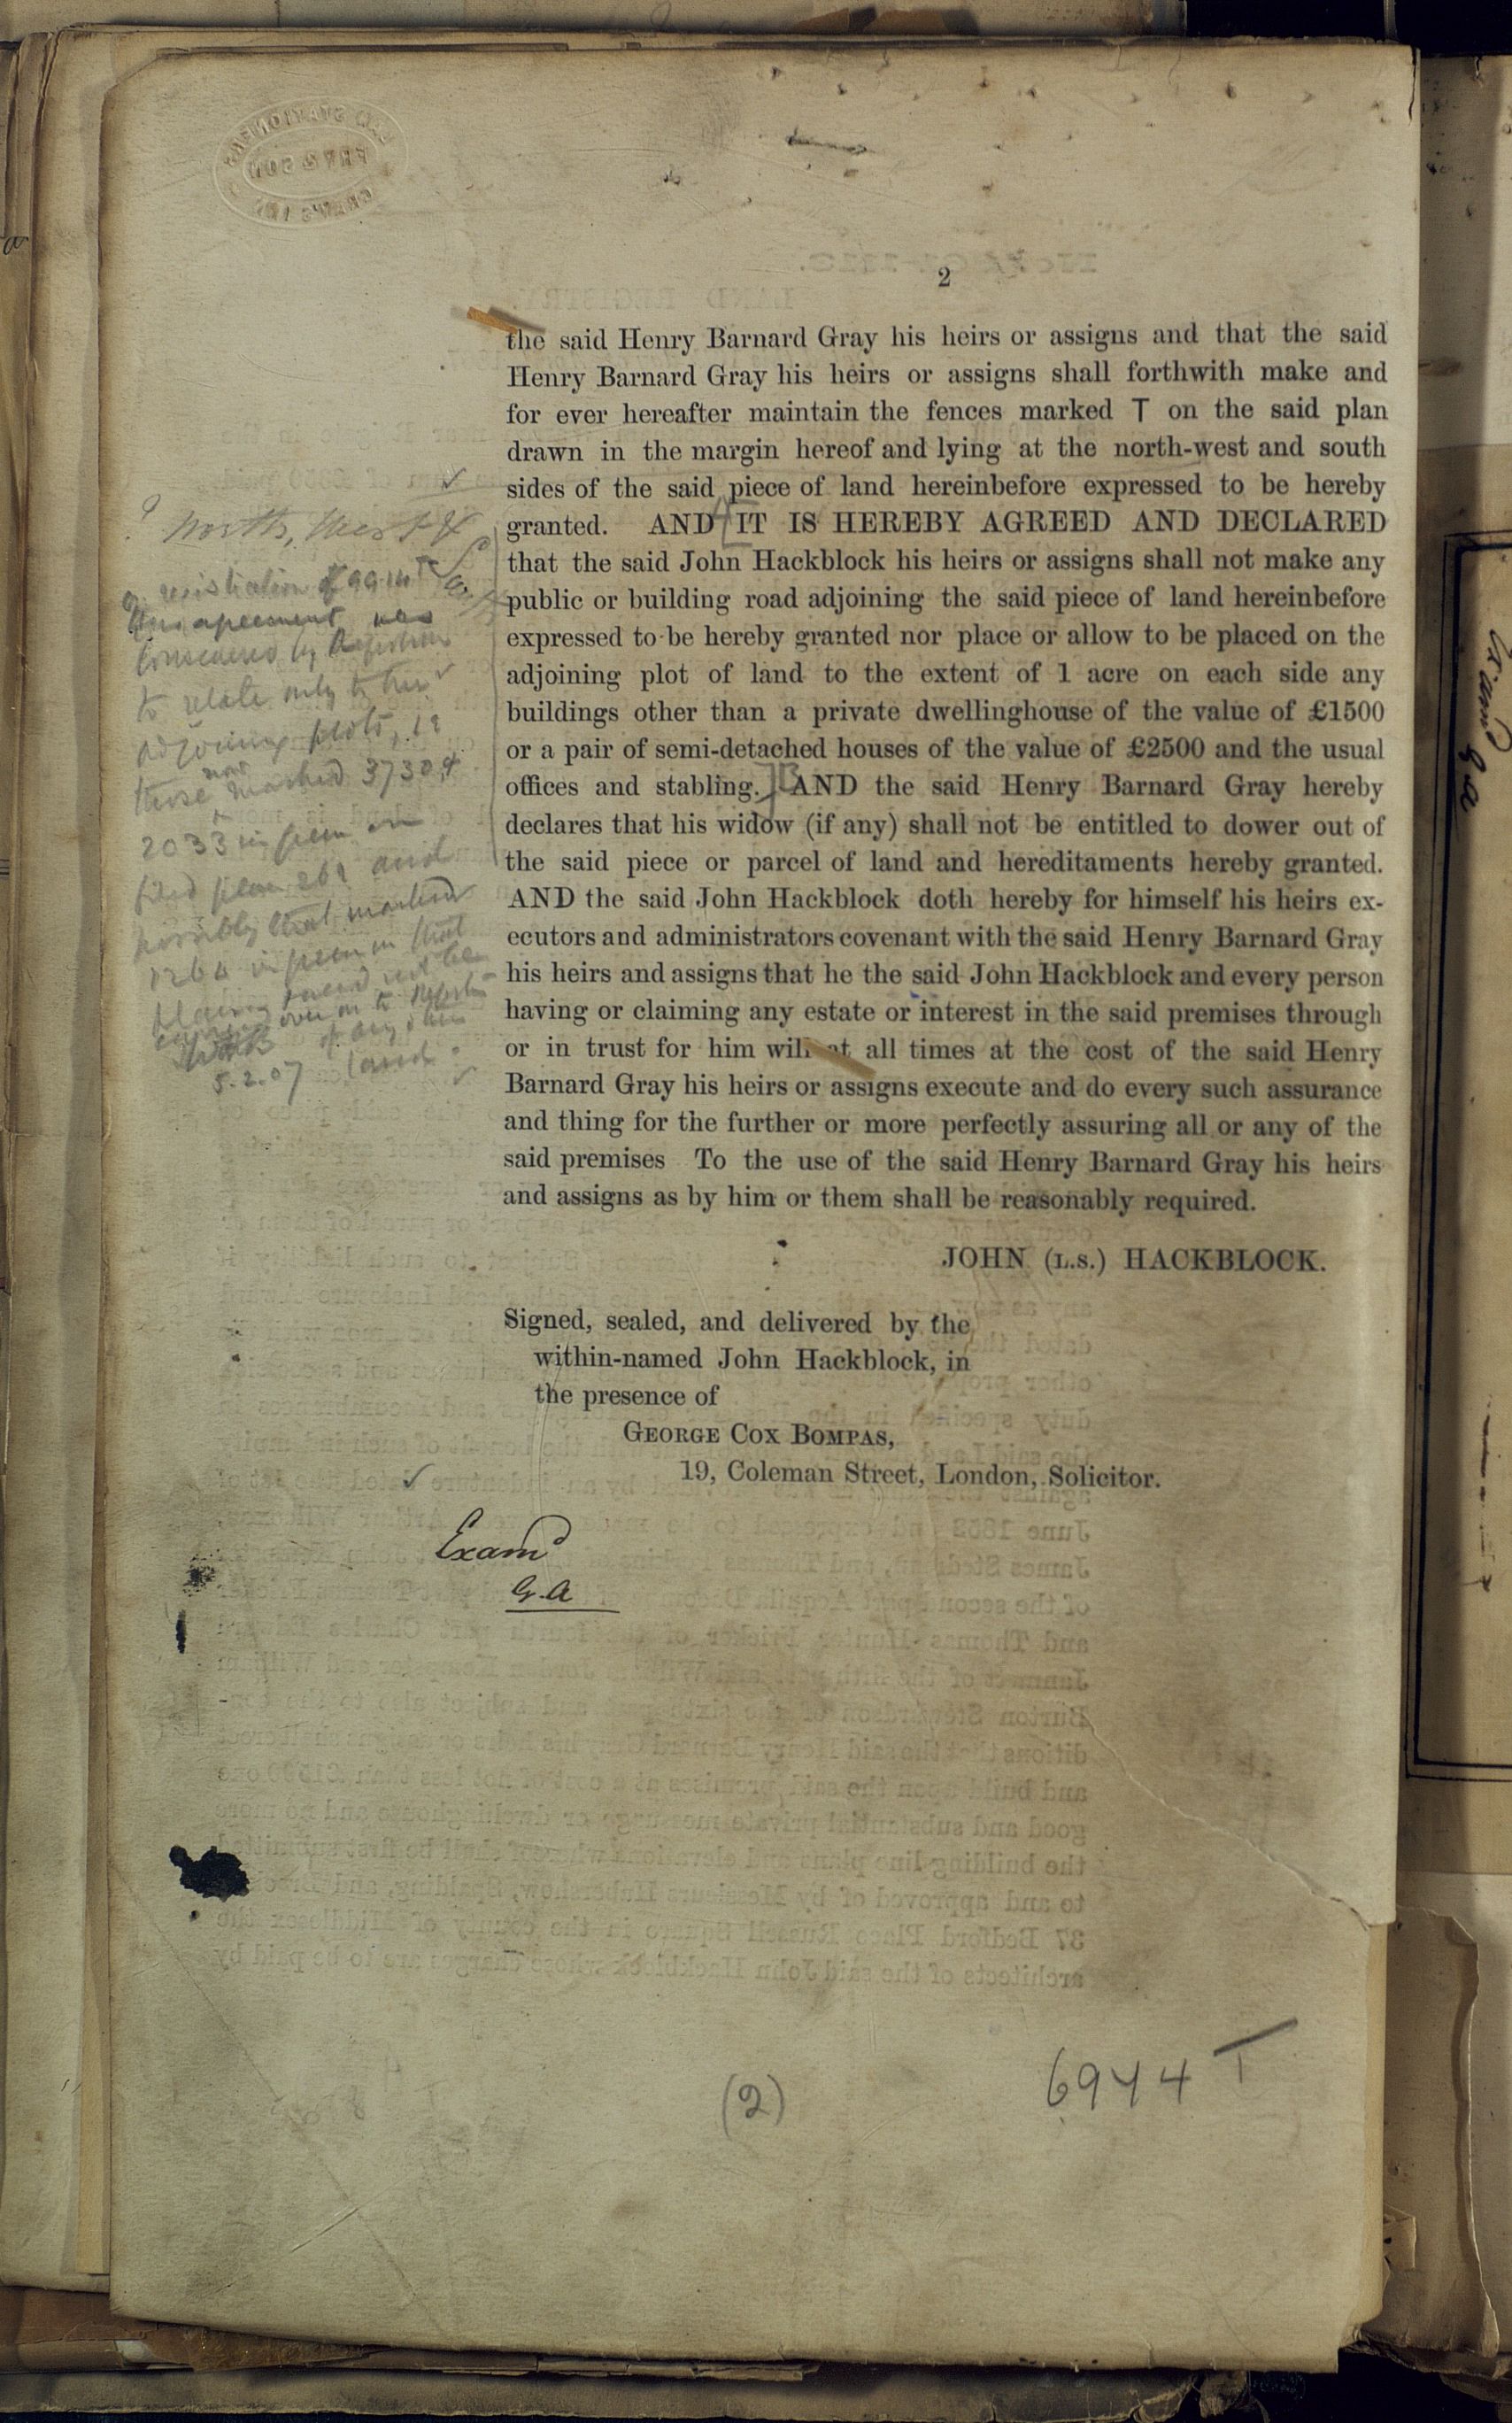 2
the said Henry Barnard Gray his heirs or assigns and that the said
Henry Barnard Gray his heirs or assigns shall forthwith make and
for ever hereafter maintain the fences marked T on the said plan
drawn in the margin hereof and lying at the north-west and south
sides of the said piece of land hereinbefore expressed to be hereby
granted. AND IT IS HEREBY AGREED AND DECLARED
that the said John Hackblock his heirs or assigns shall not make any
public or building road adjoining the said piece of land hereinbefore
expressed to be hereby granted nor place or allow to be placed on the
adjoining plot of land to the extent of 1 acre on each side any
buildings other than a private dwellinghouse of the value of £1500
or a pair of semi-detached houses of the value of £2500 and the usual
offices and stabling. AND the said Henry Barnard Gray hereby
declares that his widow (if any) shall not be entitled to dower out of
the said piece or parcel of land and hereditaments hereby granted.
AND the said John Hackblock doth hereby for himself his heirs ex-
ecutors and administrators covenant with the said Henry Barnard Gray
his heirs and assigns that he the said John Hackblock and every person
having or claiming any estate or interest in the said premises through
or in trust for him will at all times at the cost of the said Henry
Barnard Gray his heirs or assigns execute and do every such assurance
and thing for the further or more perfectly assuring all or any of the
said premises To the use of the said Henry Barnard Gray his heirs
and assigns as by him or them shall be reasonably required.
JOHN (L.S.) HACKBLOCK.
Signed, sealed, and delivered by the
within-named John Hackblock, in
the presence of
GEORGE COX BOMPAS,
19, Coleman Street, London, Solicitor.
Examd
G.A
? North, West &
On registration of 6944
this agreement was
considered by Registrar
to relate only to two
adjoining plots, ie
those now marked 3730 &
2033 in green on
filed plan 261 and
possibly that marked
1264 in green on that
plan
5.2.07 land
(2)
6944 T